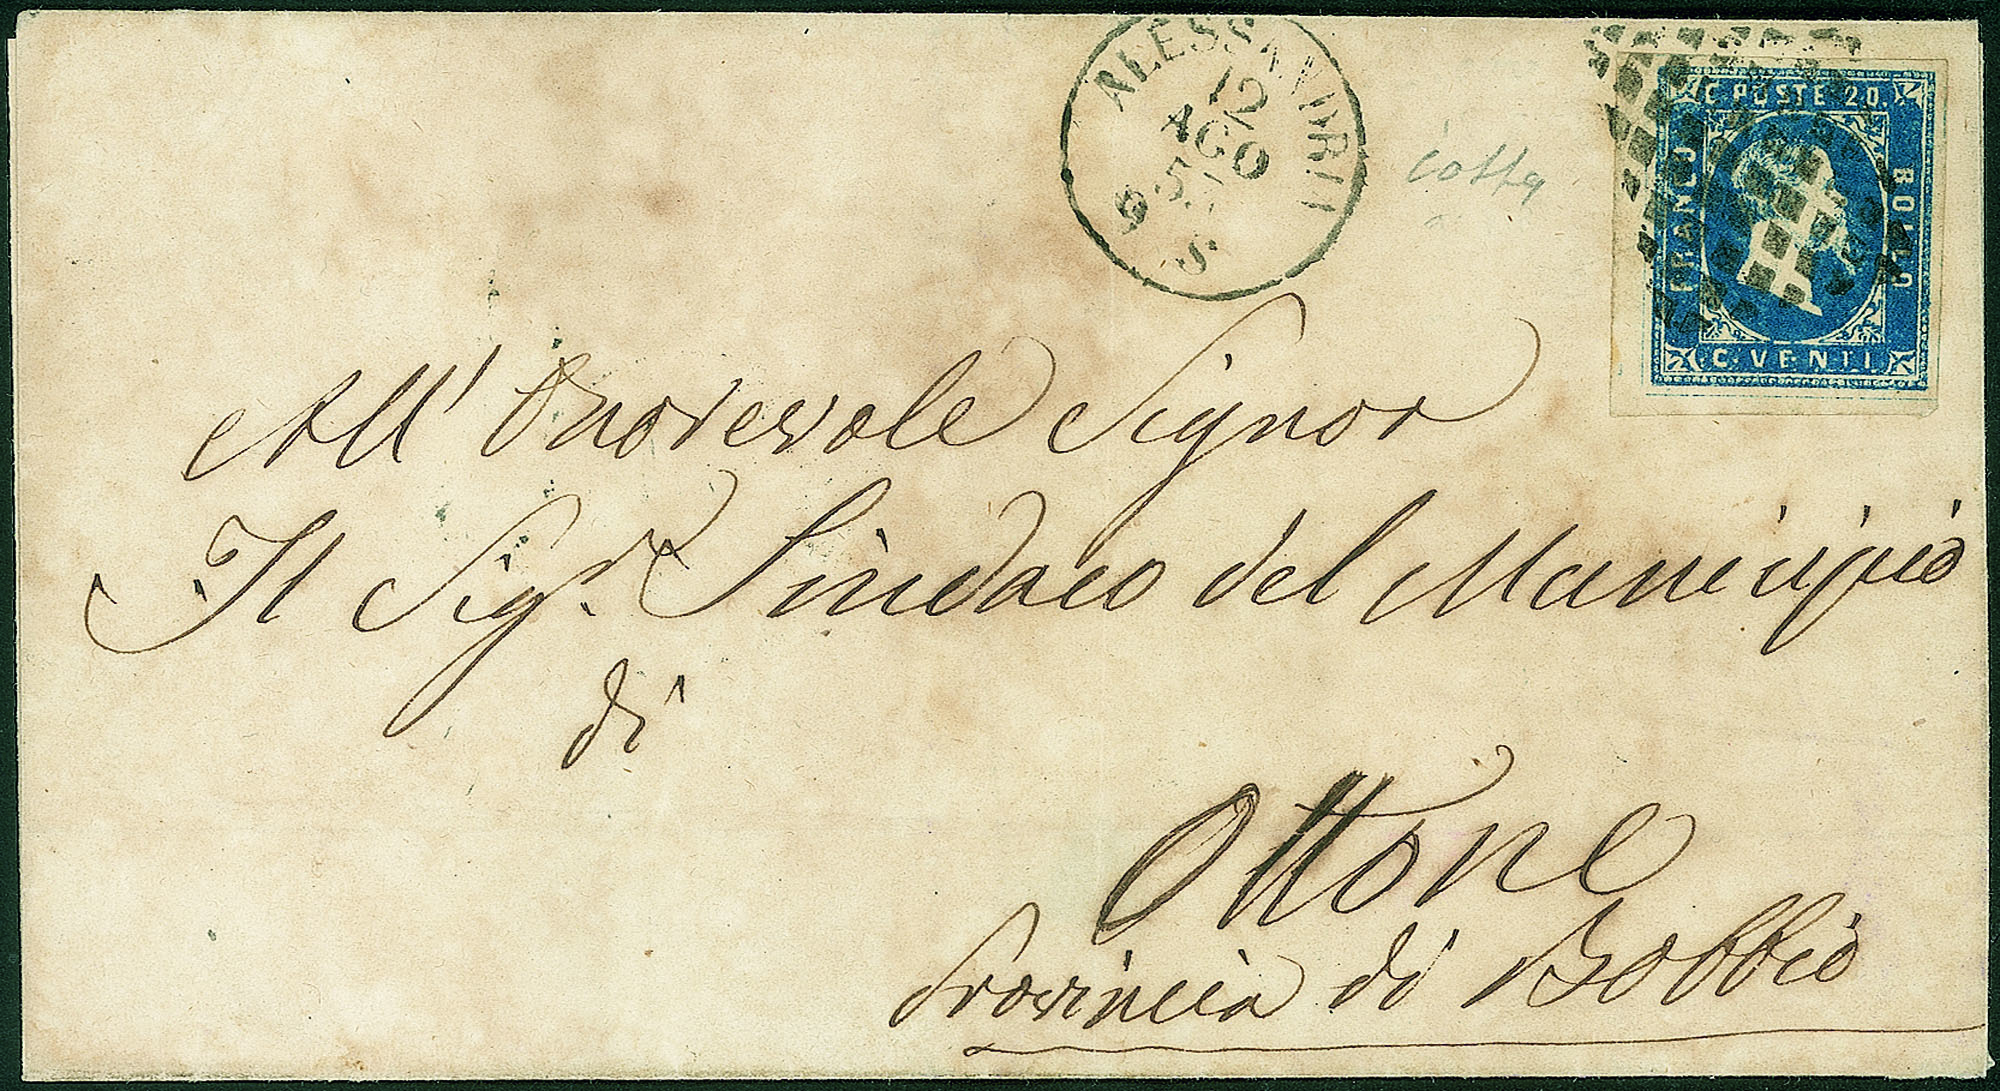 ALESSANDRIA
12
AGO
5
S
C. POSTE 20.
FRANCO
BOLLO
C. VENTI
All' Onorevole Signor
Il Sigr. Sindaco del Municipio
di
Ottone
Provincia di Bobbio